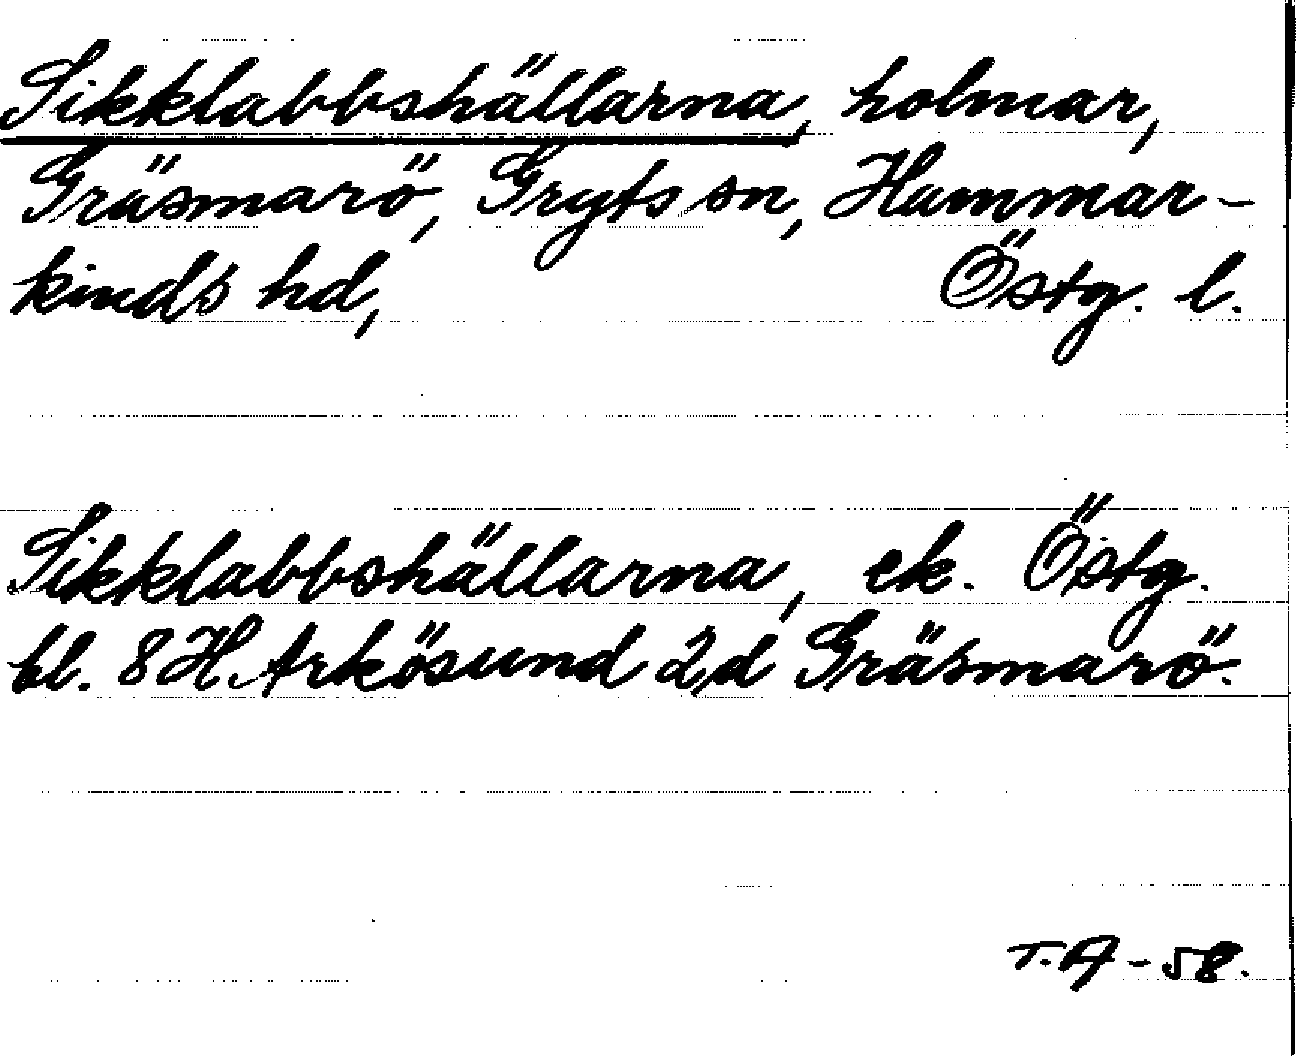 Sikklabbshällarna, holmar,
Gräsmarö, Gryts sn, Hammar-
kinds hd, Östg. l.
Sikklabbshällarna, ek. Östg.
bl. 8 H Arkösund 2,d Gräsmarö.
T.A-58.